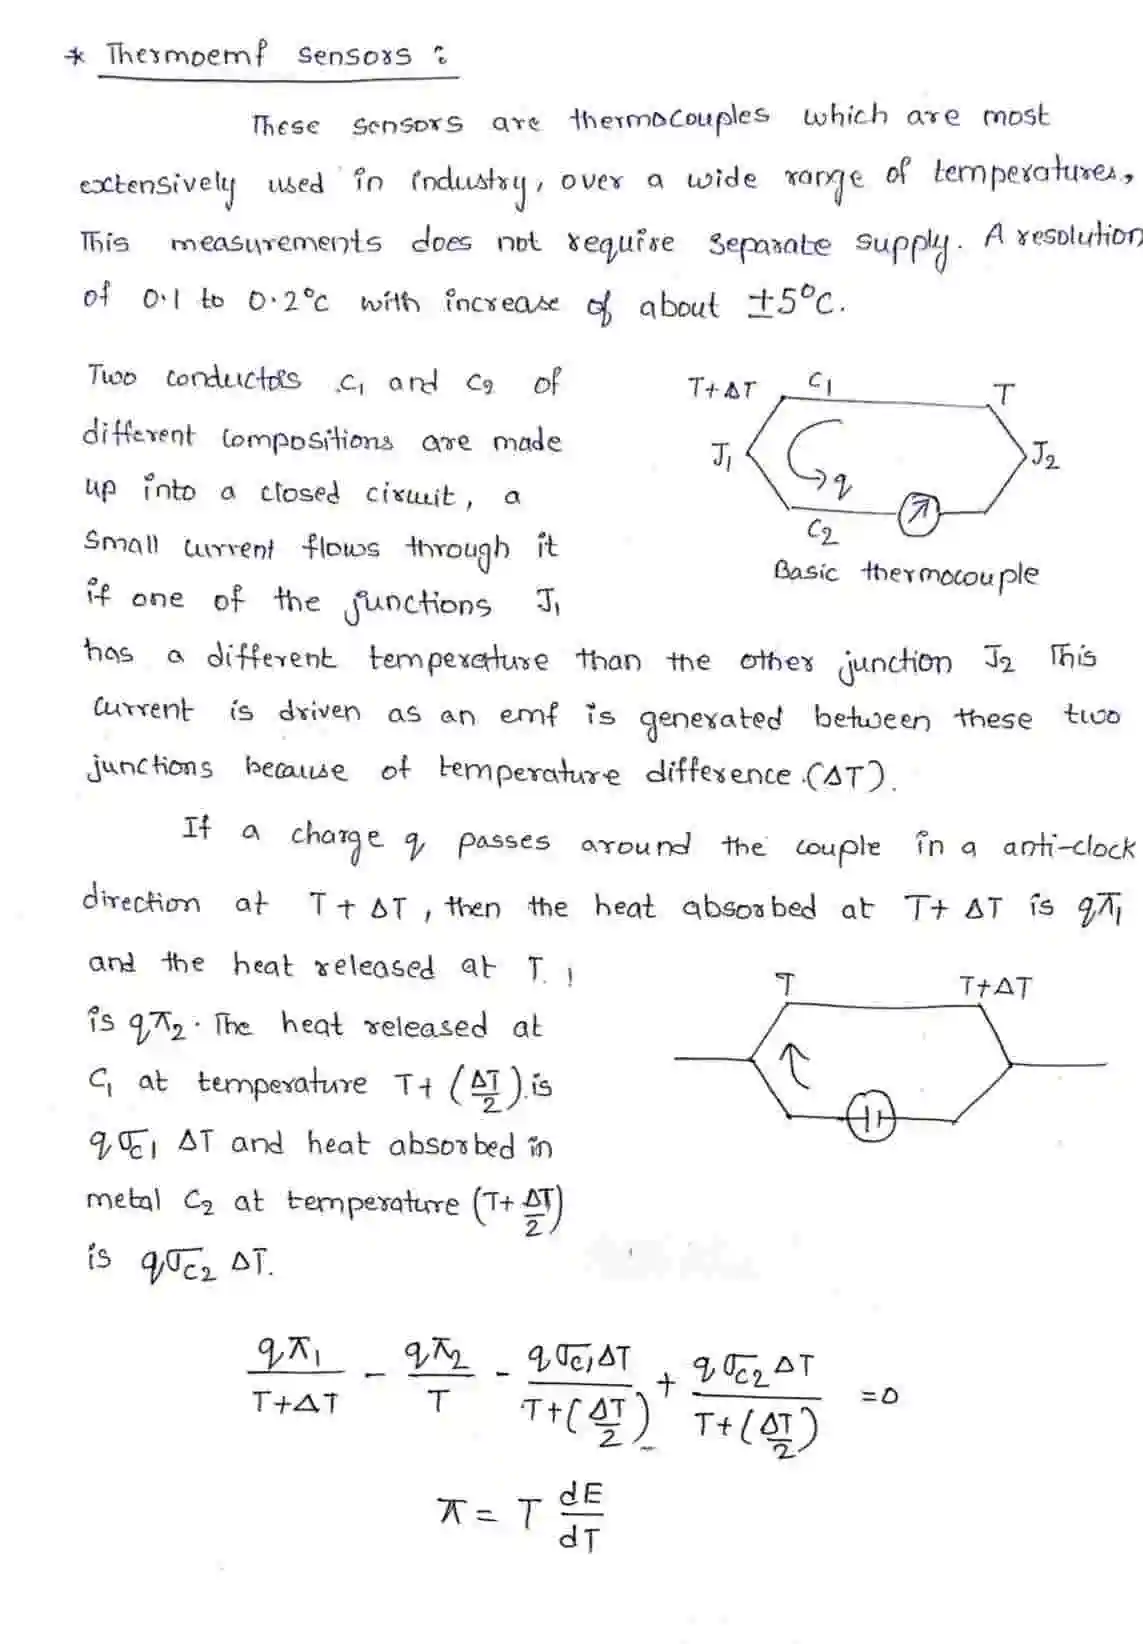 * Thermoemf sensors :
These sensors are thermocouples which are most
extensively used in industry, over a wide range of temperatures,
This measurements does not require separate supply. A resolution
of 0.1 to 0.2°C with increase of about ±5°C.
Two conductors C1 and C2 of
different compositions are made
up into a closed circuit, a
small current flows through it
if one of the junctions J1
T+ΔT C1 T
J1 q J2
C2
Basic thermocouple
has a different temperature than the other junction J2 This
current is driven as an emf is generated between these two
junctions because of temperature difference.(ΔT).
If a charge q passes around the couple in a anti-clock
direction at T+ΔT, then the heat absorbed at T+ΔT is qπ1
and the heat released at T.
is qπ2. The heat released at
C1 at temperature T+(ΔT/2).is
qσC1 ΔT and heat absorbed in
metal C2 at temperature (T+ΔT/2)
is qσC2 ΔT.
T T+ΔT
qπ1/T+ΔT - qπ2/T - qσC1ΔT/T+(ΔT/2) + qσC2ΔT/T+(ΔT/2) =0
π = T dE/dT